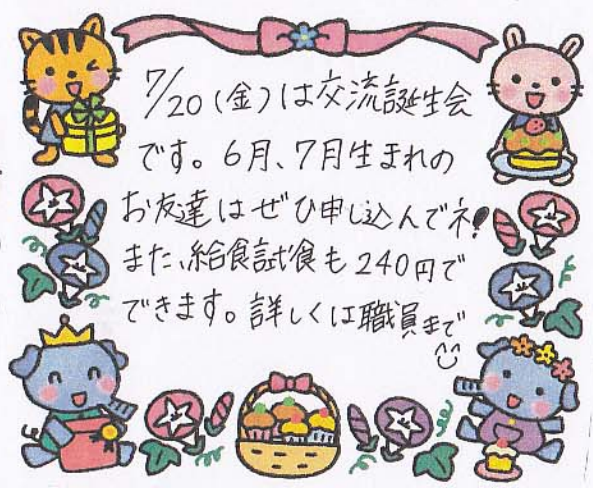 7/20(金)は交流誕生会
です。6月、7月生まれの
お友達はぜひ申し込んでネ!
また、給食試食も240円で
できます。詳しくは職員まで